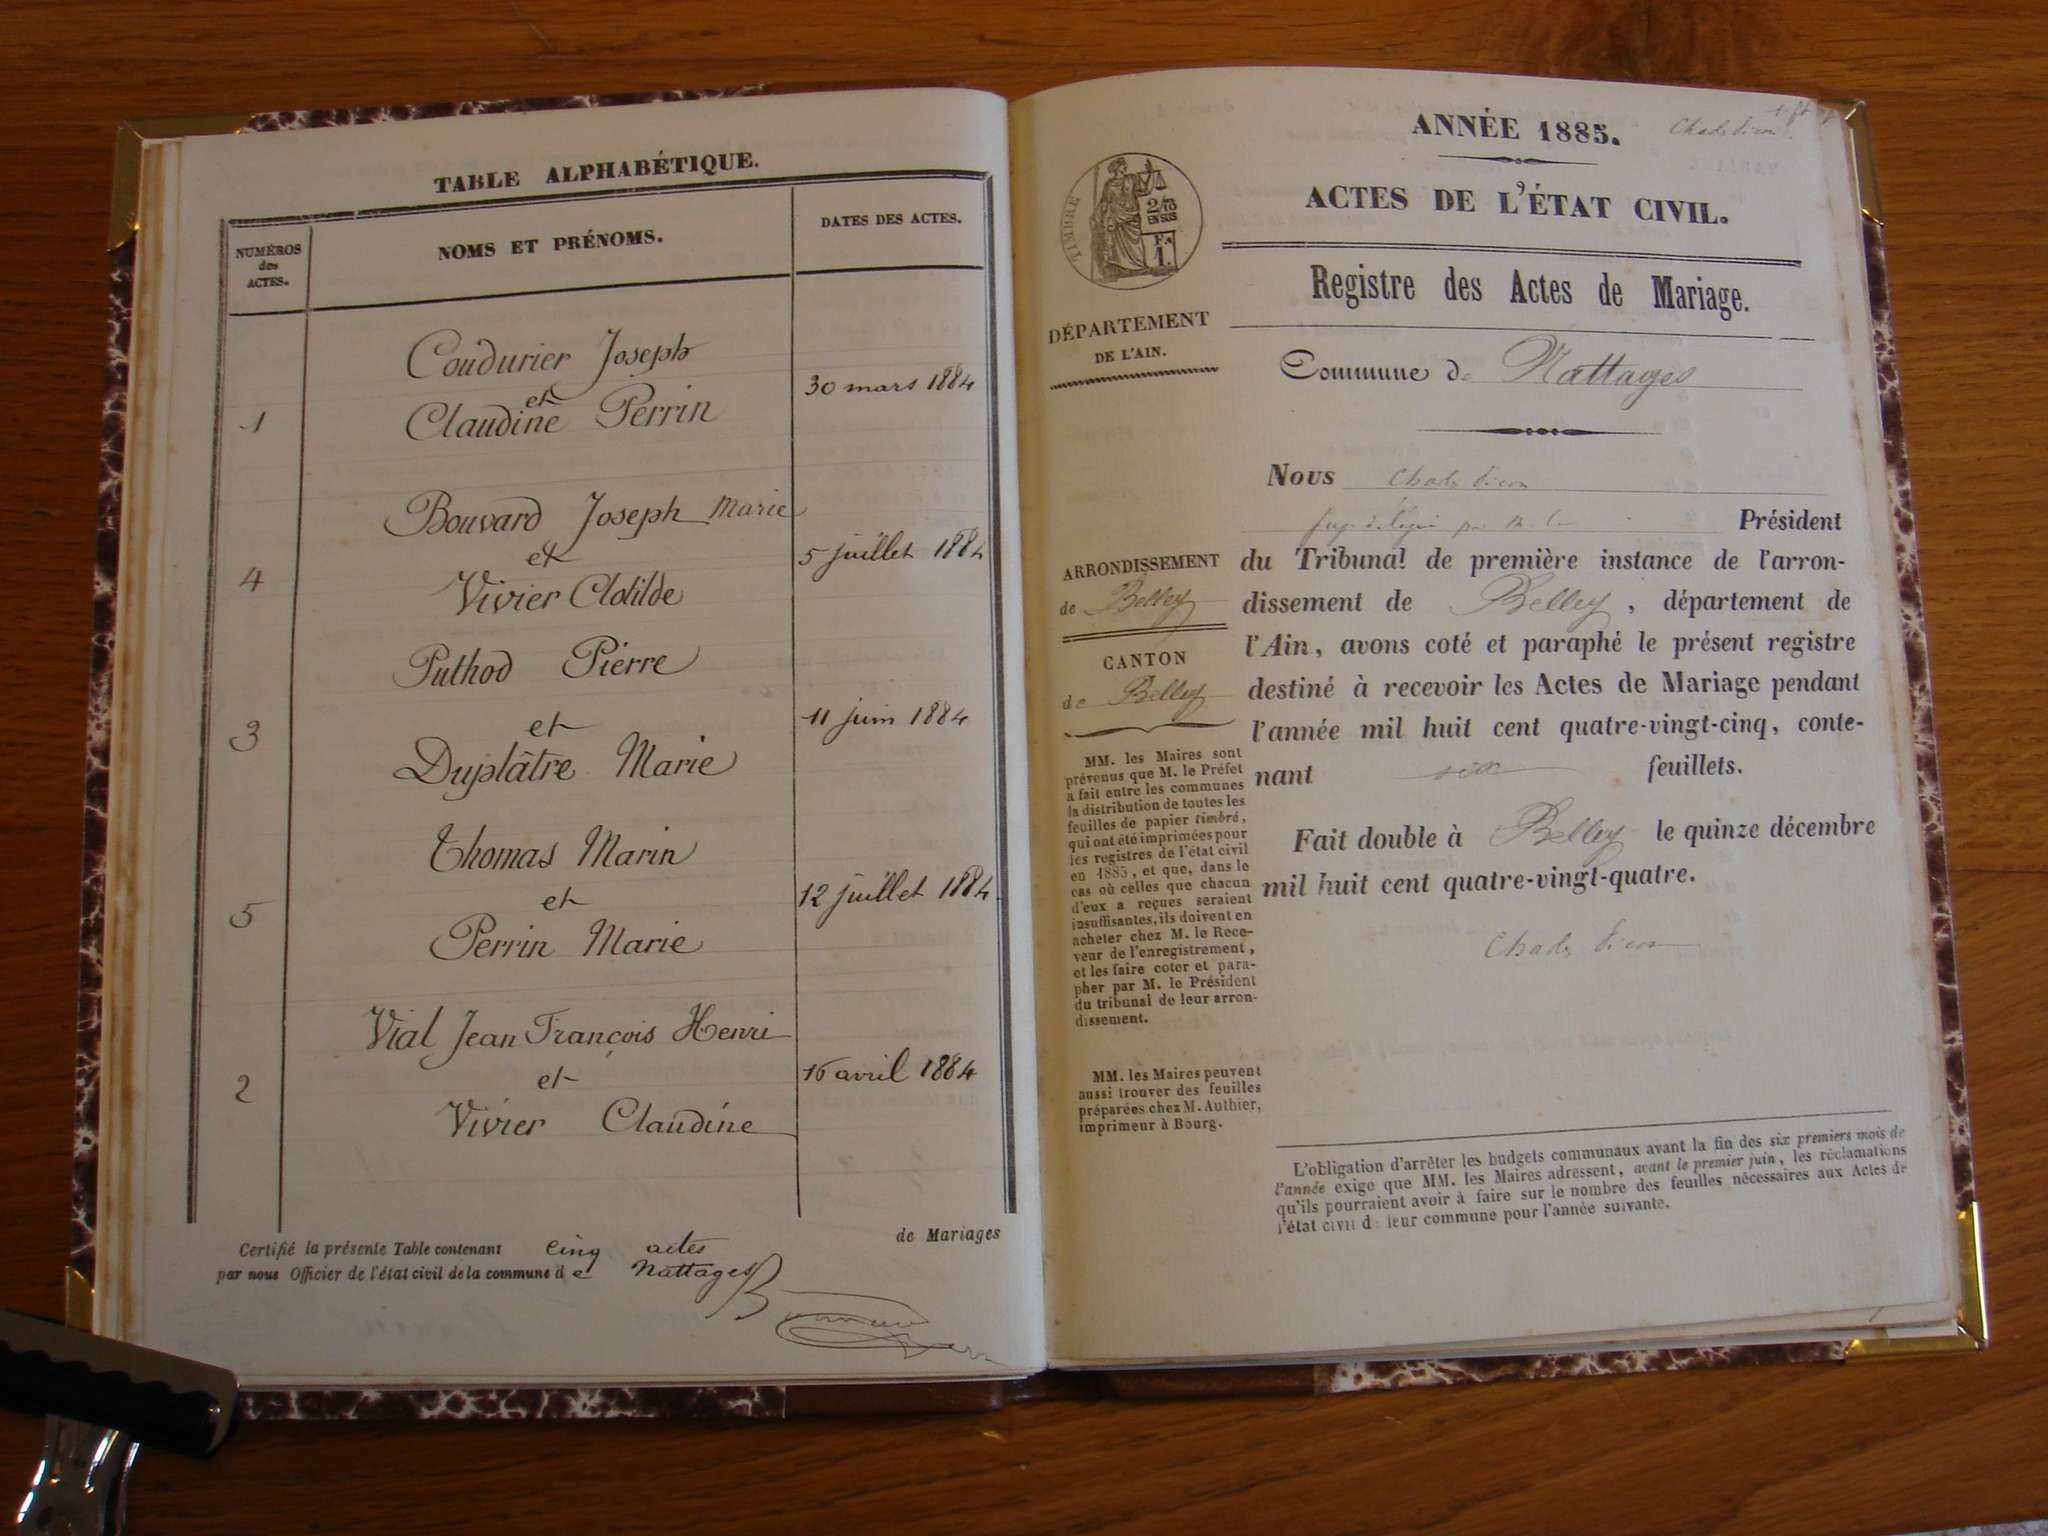 TABLE ALPHABÉTIQUE.
NUMÉROS
des
ACTES.
NOMS ET PRÉNOMS.
DATES DES ACTES.
1
Coudurier Joseph
et
Claudine Perrin
30 mars 1884
4
Bouvard Joseph Marie
et
Vivier Clotilde
5 juillet 1884
3
Puthod Pierre
et
Duplâtre Marie
11 juin 1884
5
Thomas Marin
et
Perrin Marie
12 juillet 1884
2
Vial Jean François Henri
et
Vivier Claudine
16 avril 1884
Certifié la présente Table contenant cinq actes de Mariages
par nous Officier de l'état civil de la commune de Nattages
ANNÉE 1885.
ACTES DE L'ÉTAT CIVIL.
TIMBRE
2/10
EN SUS
Fr.
1.
Registre des Actes de Mariage.
DÉPARTEMENT
DE L'AIN.
Commune de Nattages
Nous
Président
ARRONDISSEMENT
de Belley
CANTON
de Belley
du Tribunal de première instance de l'arron-
dissement de Belley, département de
l'Ain, avons coté et paraphé le présent registre
destiné à recevoir les Actes de Mariage pendant
l'année mil huit cent quatre-vingt-cinq, conte-
nant six feuillets.
Fait double à Belley le quinze décembre
mil huit cent quatre-vingt-quatre.
MM. les Maires sont
prévenus que M. le Préfet
a fait entre les communes
la distribution de toutes les
feuilles de papier timbré,
qui ont été imprimées pour
les registres de l'état civil
en 1885, et que, dans le
cas où celles que chacun
d'eux a reçues seraient
insuffisantes, ils doivent en
acheter chez M. le Rece-
veur de l'enregistrement,
et les faire coter et para-
pher par M. le Président
du tribunal de leur arron-
dissement.
MM. les Maires peuvent
aussi trouver des feuilles
préparées chez M. Authier,
imprimeur à Bourg.
L'obligation d'arrêter les budgets communaux avant la fin des six premiers mois de
l'année exige que MM. les Maires adressent, avant le premier juin, les réclamations
qu'ils pourraient avoir à faire sur le nombre des feuilles nécessaires aux Actes de
l'état civil de leur commune pour l'année suivante.